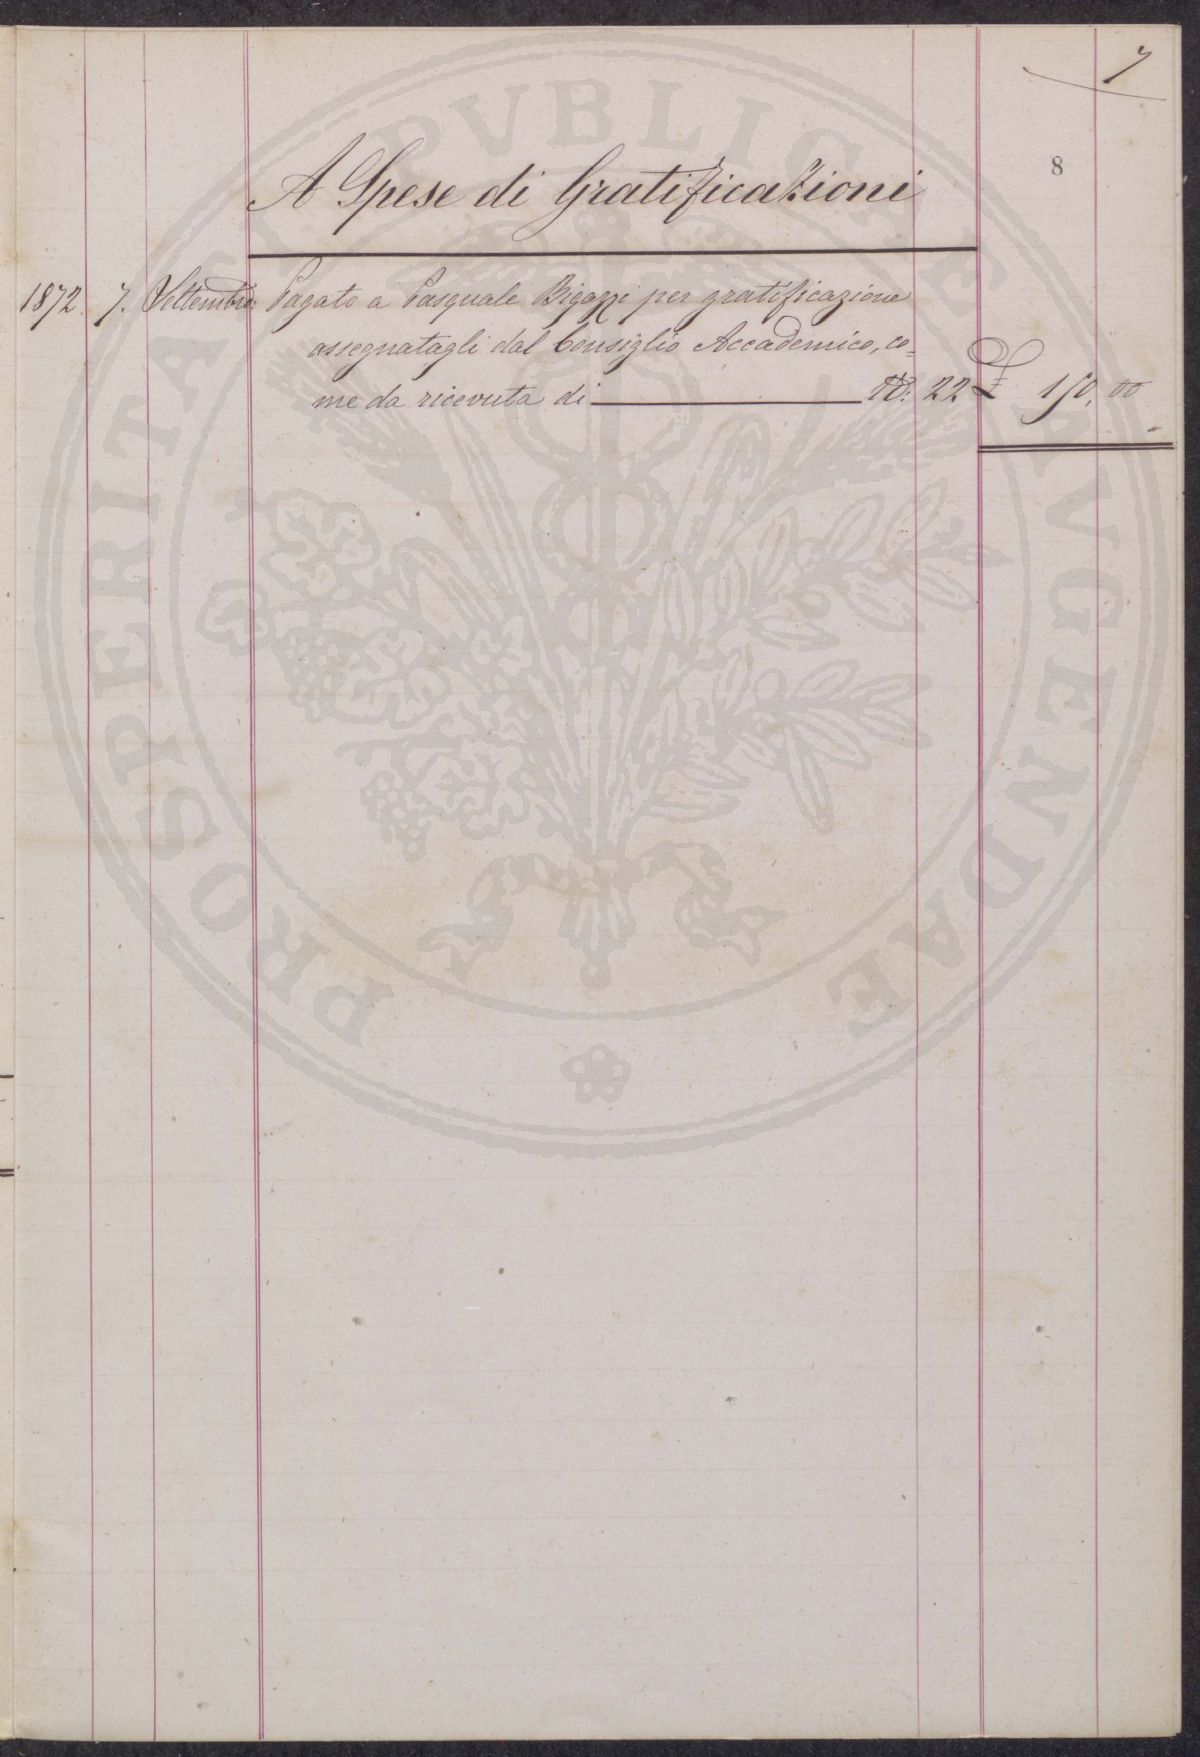 7
8
A Spese di Gratificazioni
1872. 7. Settembre Pagato a Pasquale Bigazzi per gratificazione
assegnatagli dal Consiglio Accademico, co=
me da ricevuta di N°. 22 £ 150,00
PROSPERITATI PVBLICAE AVGENDAE